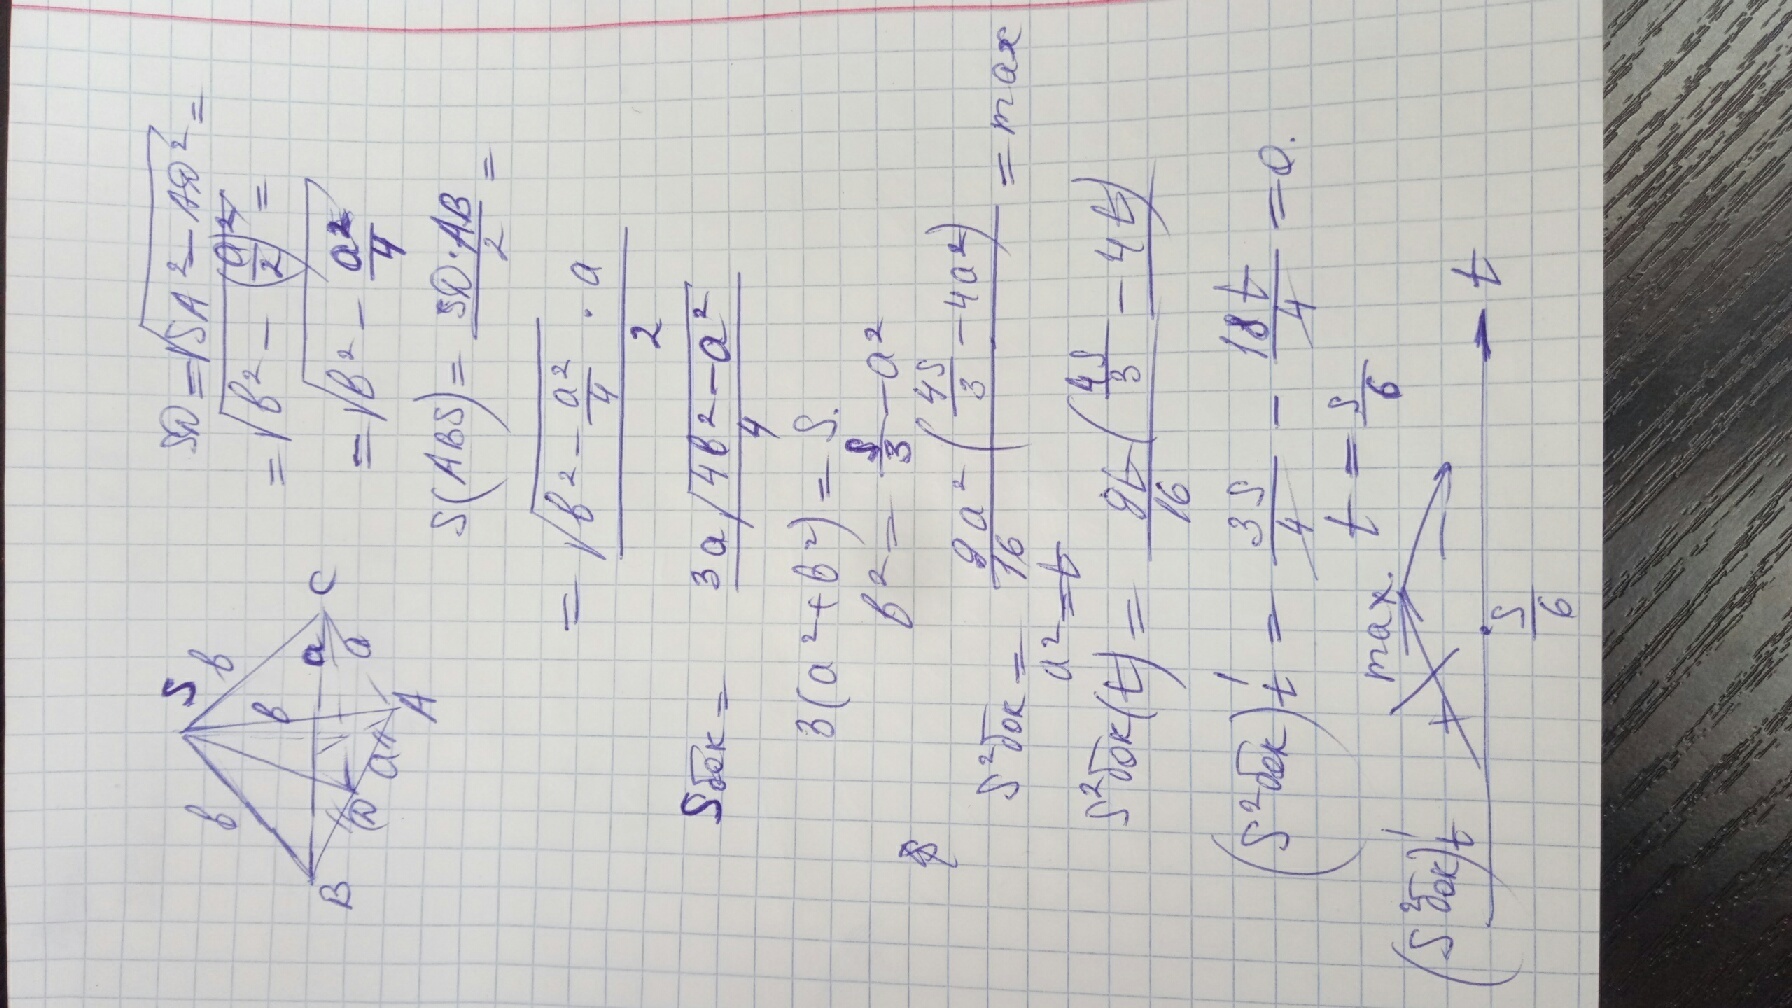 S
b
b
b
a
a
a
B
C
A
(D)
SD = √(SA² − AD²) =
= √(b² − (a/2)²) =
= √(b² − a²/4)
S(ABS) = SD·AB/2 =
= √(b² − a²/4) · a / 2
Sбок = 3a√(4b² − a²) / 4
3(a² + b²) = S.
b² = S/3 − a²
S²бок = 9a²/16 (4S/3 − 4a²) = max
a² = t
S²бок(t) = 9t/16 (4S/3 − 4t)
(S²бок)'t = 3S/4 − 18t/4 = 0.
t = S/6
max.
+
−
(S²бок)'t
S/6
t